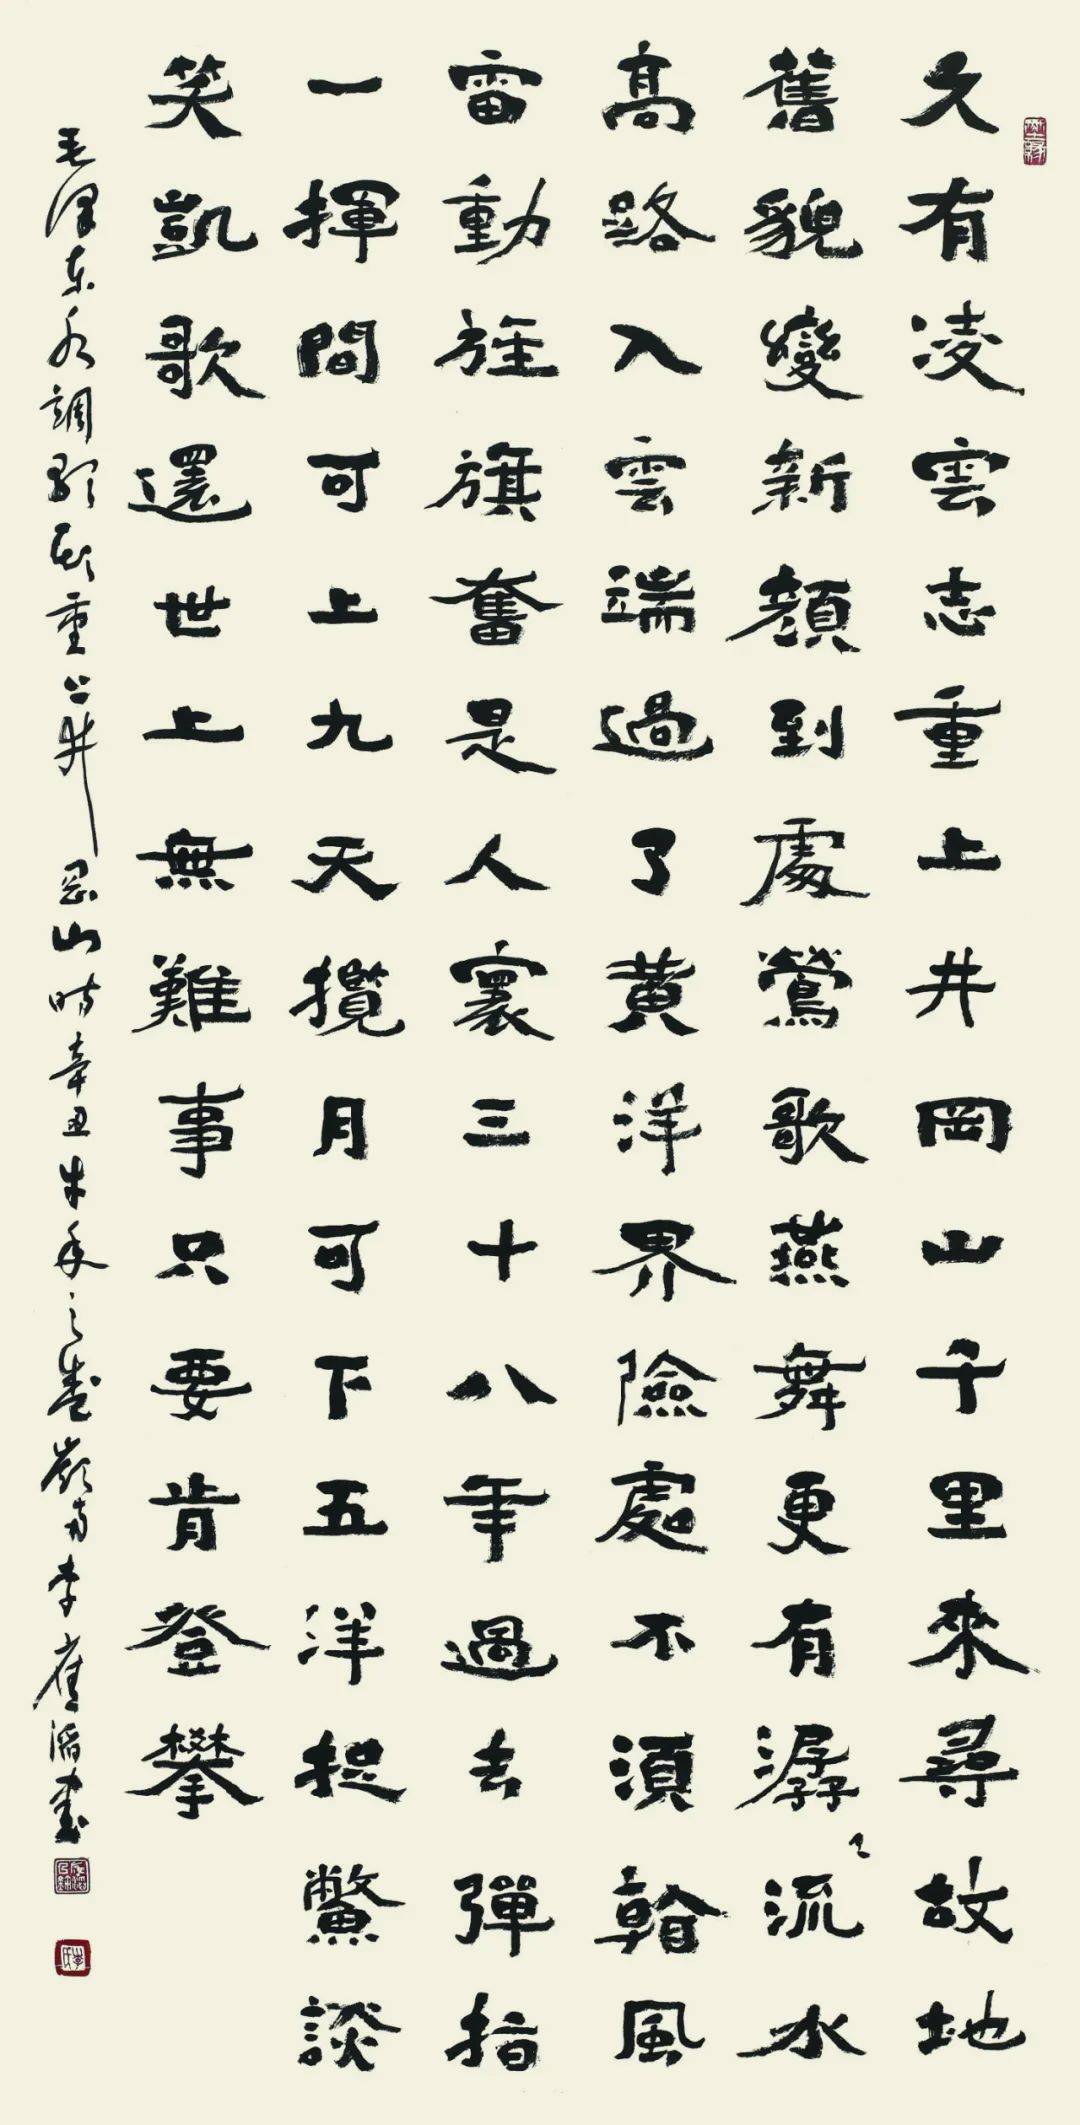 久有凌雲志重上井岡山千里來尋故地
舊貌變新顏到處鶯歌燕舞更有潺〻流水
高路入雲端過了黃洋界險處不須看風
雷動旌旗奮是人寰三十八年過去彈指
一揮間可上九天攬月可下五洋捉鱉談
笑凱歌還世上無難事只要肯登攀
毛澤東水調歌頭重上井岡山時辛丑牛年之春嶺南李應滔書